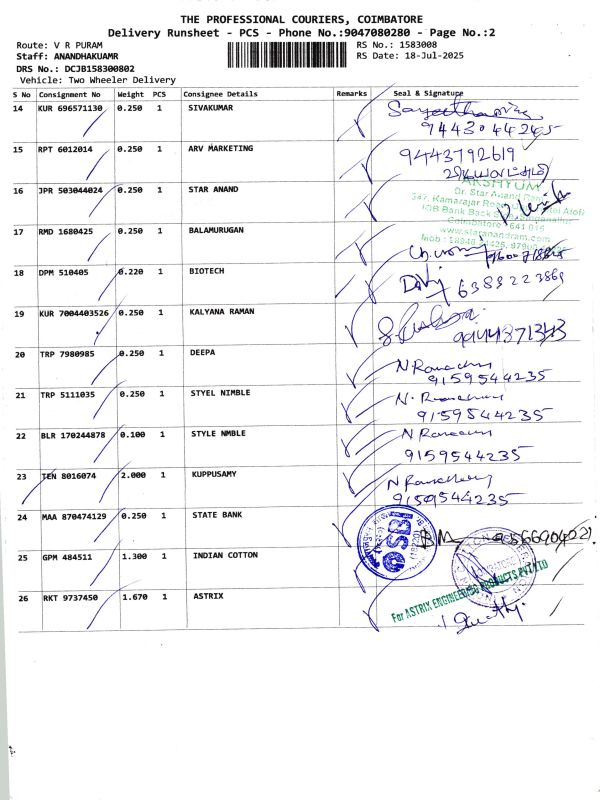 THE PROFESSIONAL COURIERS, COIMBATORE
Delivery Runsheet - PCS - Phone No.:9047080280 - Page No.:2
Route: V R PURAM
Staff: ANANDHAKUAMR
DRS No.: DCJB158300802
Vehicle: Two Wheeler Delivery
RS No.: 1583008
RS Date: 18-Jul-2025
S No Consignment No Weight PCS Consignee Details Remarks Seal & Signature
14 KUR 696571130 0.250 1 SIVAKUMAR
9443044245
15 RPT 6012014 0.250 1 ARV MARKETING 9443792619
16 JPR 503044024 0.250 1 STAR ANAND
AKSHYUM
Dr. Star Anand
347, Kamarajar Road
IOB Bank Back Side
Coimbatore - 641 015
www.staranandram.com
17 RMD 1680425 0.250 1 BALAMURUGAN
18 DPM 510405 0.220 1 BIOTECH 6383223869
19 KUR 7004403526 0.250 1 KALYANA RAMAN
9944871343
20 TRP 7980985 0.250 1 DEEPA
9159544235
21 TRP 5111035 0.250 1 STYEL NIMBLE
9159544235
22 BLR 170244878 0.100 1 STYLE NMBLE
9159544235
23 TEN 8016074 2.000 1 KUPPUSAMY
9159544235
24 MAA 870474129 0.250 1 STATE BANK
SBI
25 GPM 484511 1.300 1 INDIAN COTTON
26 RKT 9737450 1.670 1 ASTRIX
For ASTRIX ENGINEERING PRODUCTS PVT LTD